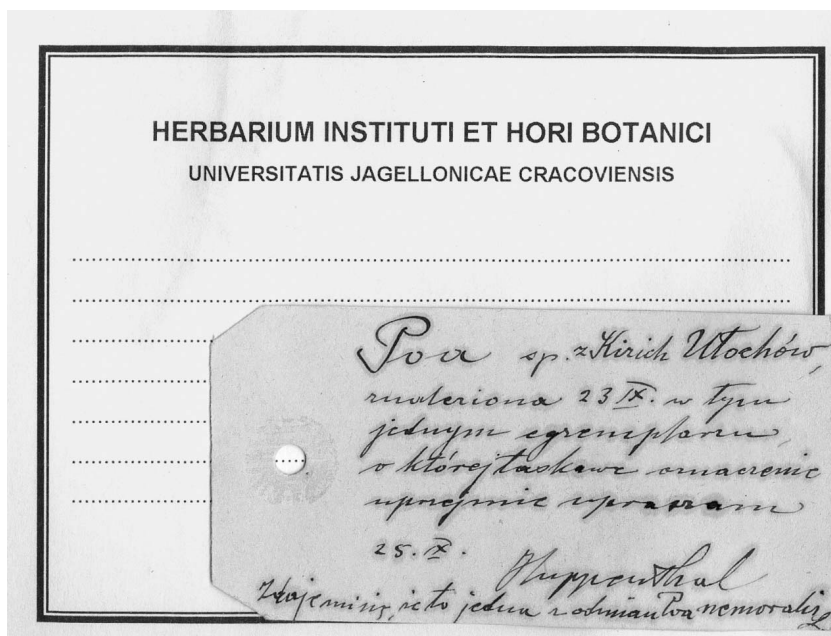 HERBARIUM INSTITUTI ET HORI BOTANICI
UNIVERSITATIS JAGELLONICAE CRACOVIENSIS
Poa sp. z Kirich
znaleziona 23 IX. w tym
jednym egzemplarzu,
o której łaskawe oznaczenie
uprzejmie upraszam
25. IX.
Huppenthal
Zdaje mi się, że to jedna z odmian Poa nemoralis L